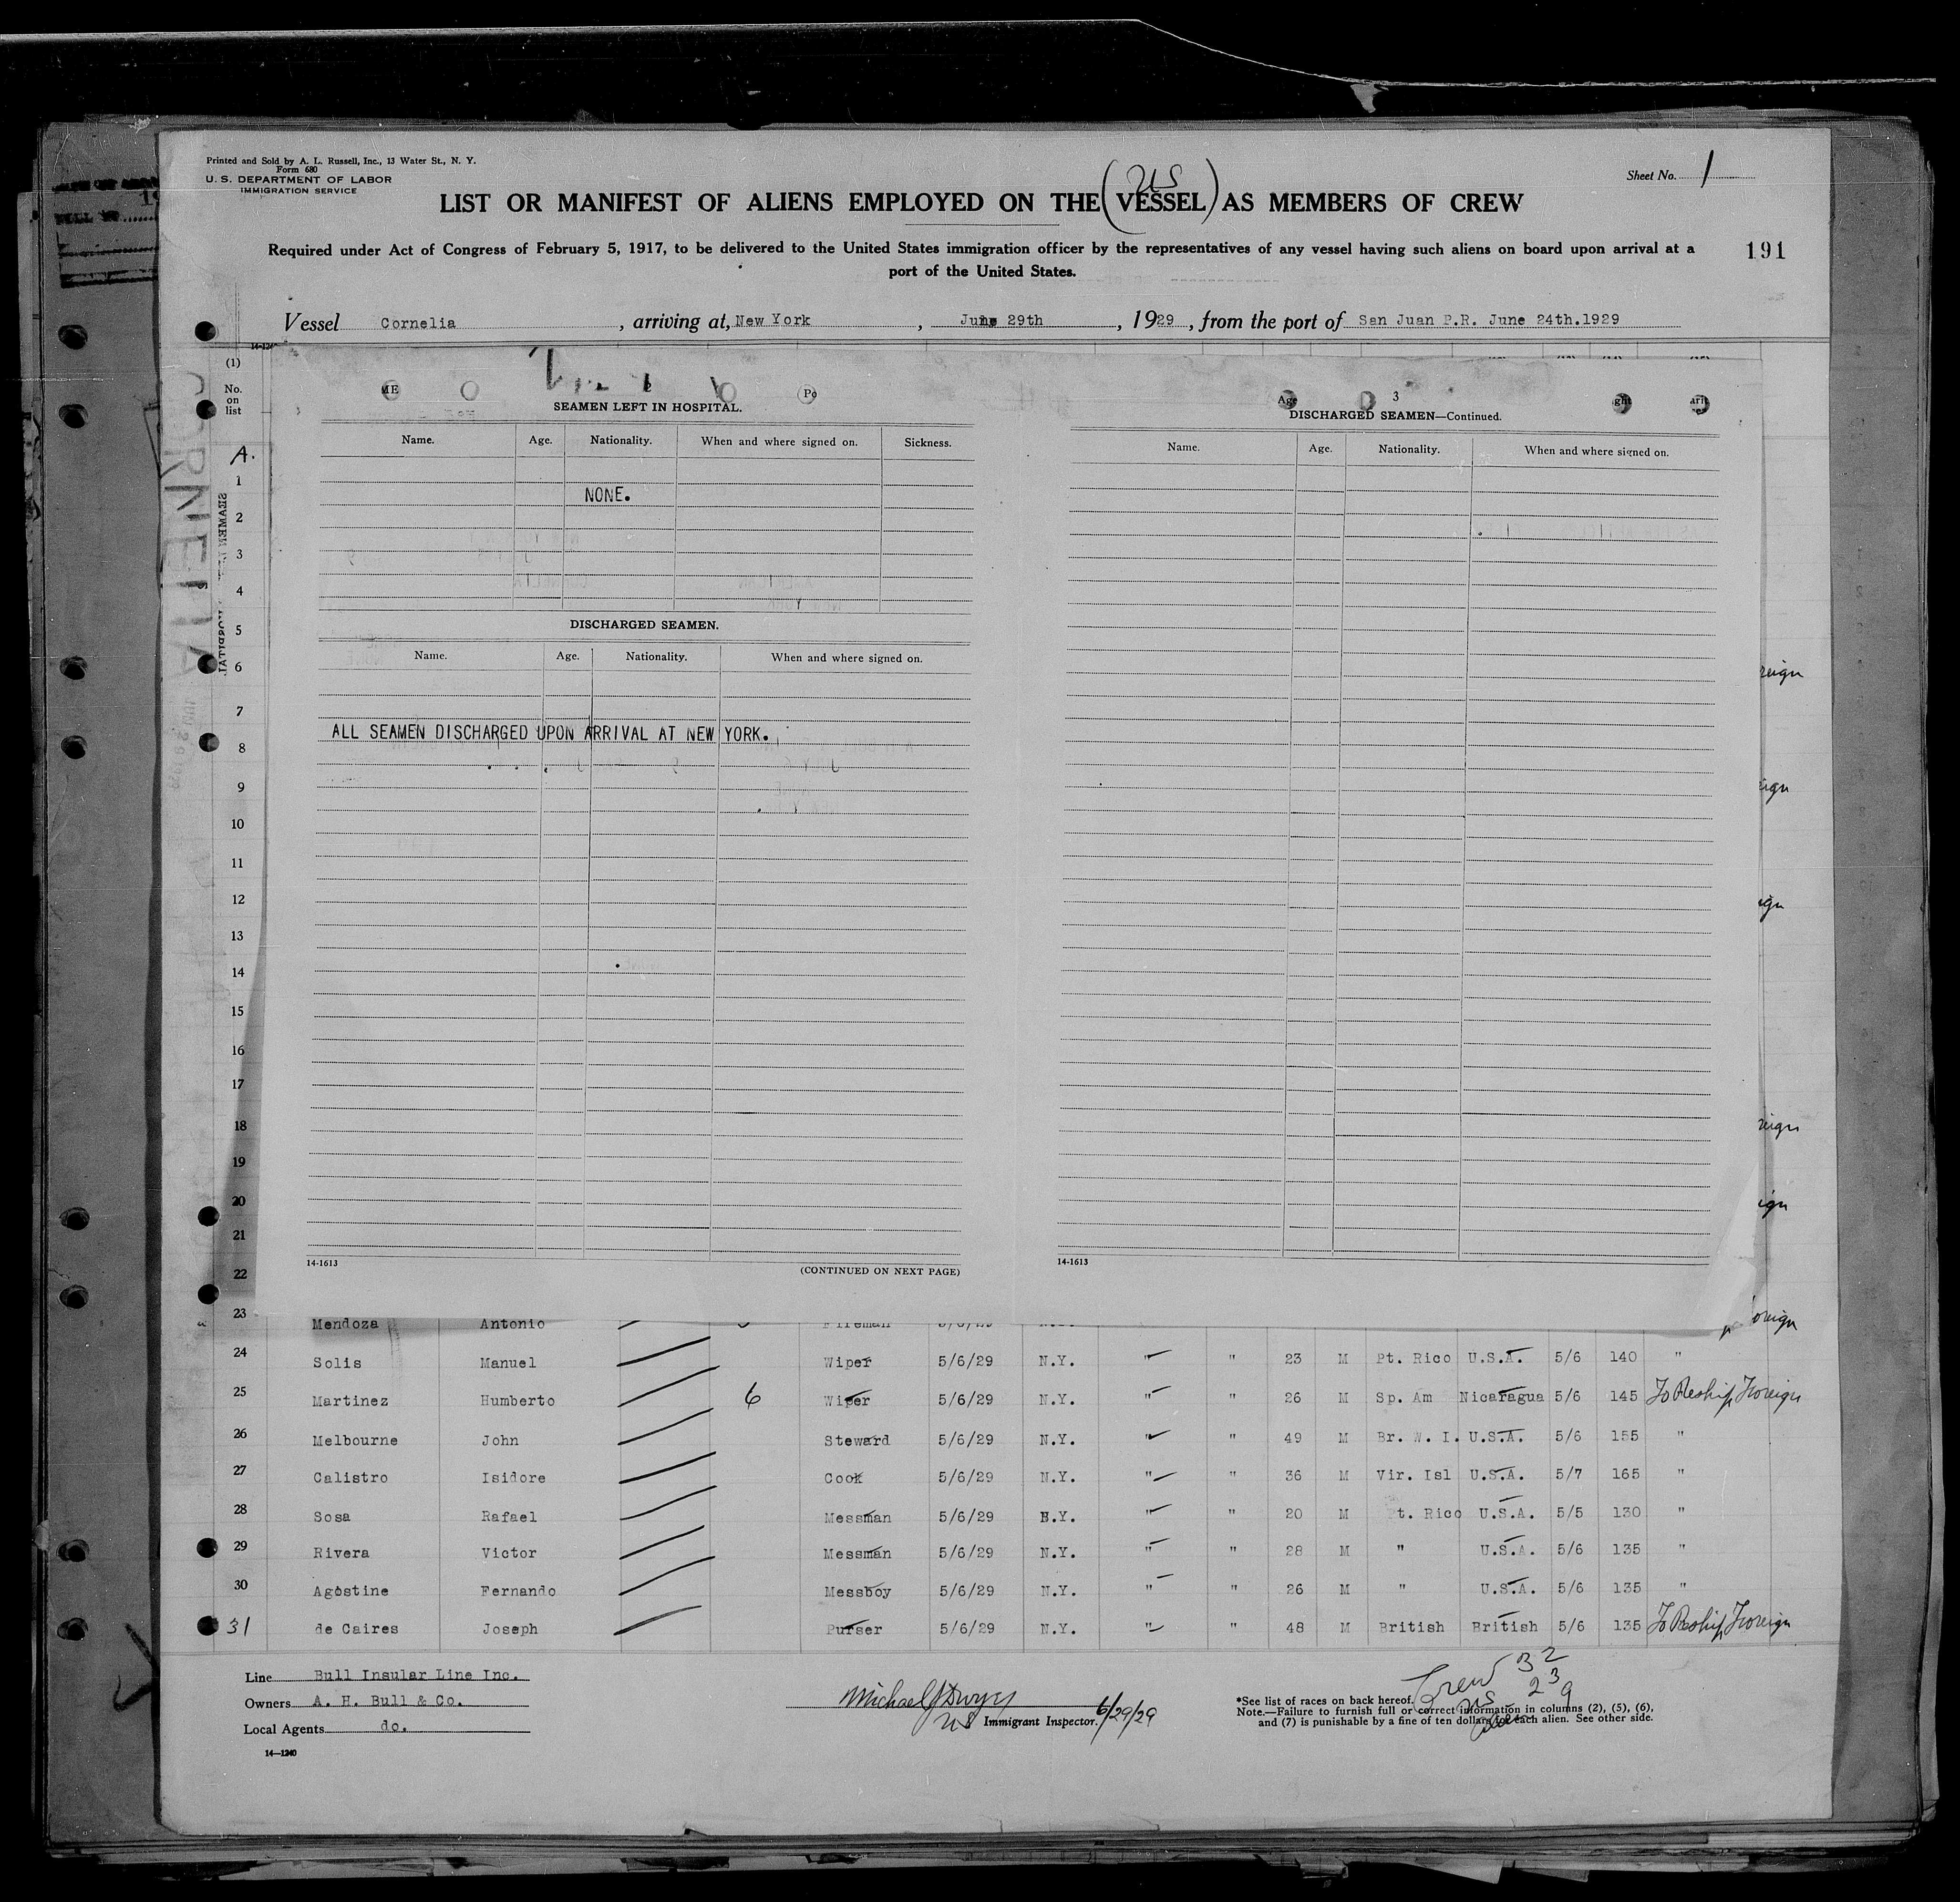 Printed and Sold by A. L. Russell, Inc., 13 Water St., N. Y.
Form 680
U. S. DEPARTMENT OF LABOR
IMMIGRATION SERVICE
Sheet No. 1
US
LIST OR MANIFEST OF ALIENS EMPLOYED ON THE (VESSEL) AS MEMBERS OF CREW
Required under Act of Congress of February 5, 1917, to be delivered to the United States immigration officer by the representatives of any vessel having such aliens on board upon arrival at a
port of the United States.
191
Vessel Cornelia, arriving at, New York, June 29th, 1929, from the port of San Juan P.R. June 24th.1929
(1)
No. on list
A.
1
2
3
4
5
6
7
8
9
10
11
12
13
14
15
16
17
18
19
20
21
22
2
SEAMEN LEFT IN HOSPITAL.
Name. Age. Nationality. When and where signed on. Sickness.
NONE.
DISCHARGED SEAMEN.
Name. Age. Nationality. When and where signed on.
ALL SEAMEN DISCHARGED UPON ARRIVAL AT NEW YORK.
14-1613
(CONTINUED ON NEXT PAGE)
3
DISCHARGED SEAMEN—Continued.
Name. Age. Nationality. When and where signed on.
14-1613
23 Mendoza Antonio Fireman 5/6/29
24 Solis Manuel Wiper 5/6/29 N.Y. " " 23 M Pt. Rico U.S.A. 5/6 140 "
25 Martinez Humberto 6 Wiper 5/6/29 N.Y. " " 26 M Sp. Am Nicaragua 5/6 145 To Reship Foreign
26 Melbourne John Steward 5/6/29 N.Y. " " 49 M Br. W. I. U.S.A. 5/6 155 "
27 Calistro Isidore Cook 5/6/29 N.Y. " " 36 M Vir. Isl U.S.A. 5/7 165 "
28 Sosa Rafael Messman 5/6/29 N.Y. " " 20 M Pt. Rico U.S.A. 5/5 130 "
29 Rivera Victor Messman 5/6/29 N.Y. " " 28 M " U.S.A. 5/6 135 "
30 Agostine Fernando Messboy 5/6/29 N.Y. " " 26 M " U.S.A. 5/6 135 "
31 de Caires Joseph Purser 5/6/29 N.Y. " " 48 M British British 5/6 135 To Reship Foreign
Line Bull Insular Line Inc.
Owners A. H. Bull & Co.
Local Agents do.
14—1240
Michael J Dwyer
US Immigrant Inspector. 6/29/29
Crew 32
US 23
9
*See list of races on back hereof.
Note.—Failure to furnish full or correct information in columns (2), (5), (6),
and (7) is punishable by a fine of ten dollars for each alien. See other side.